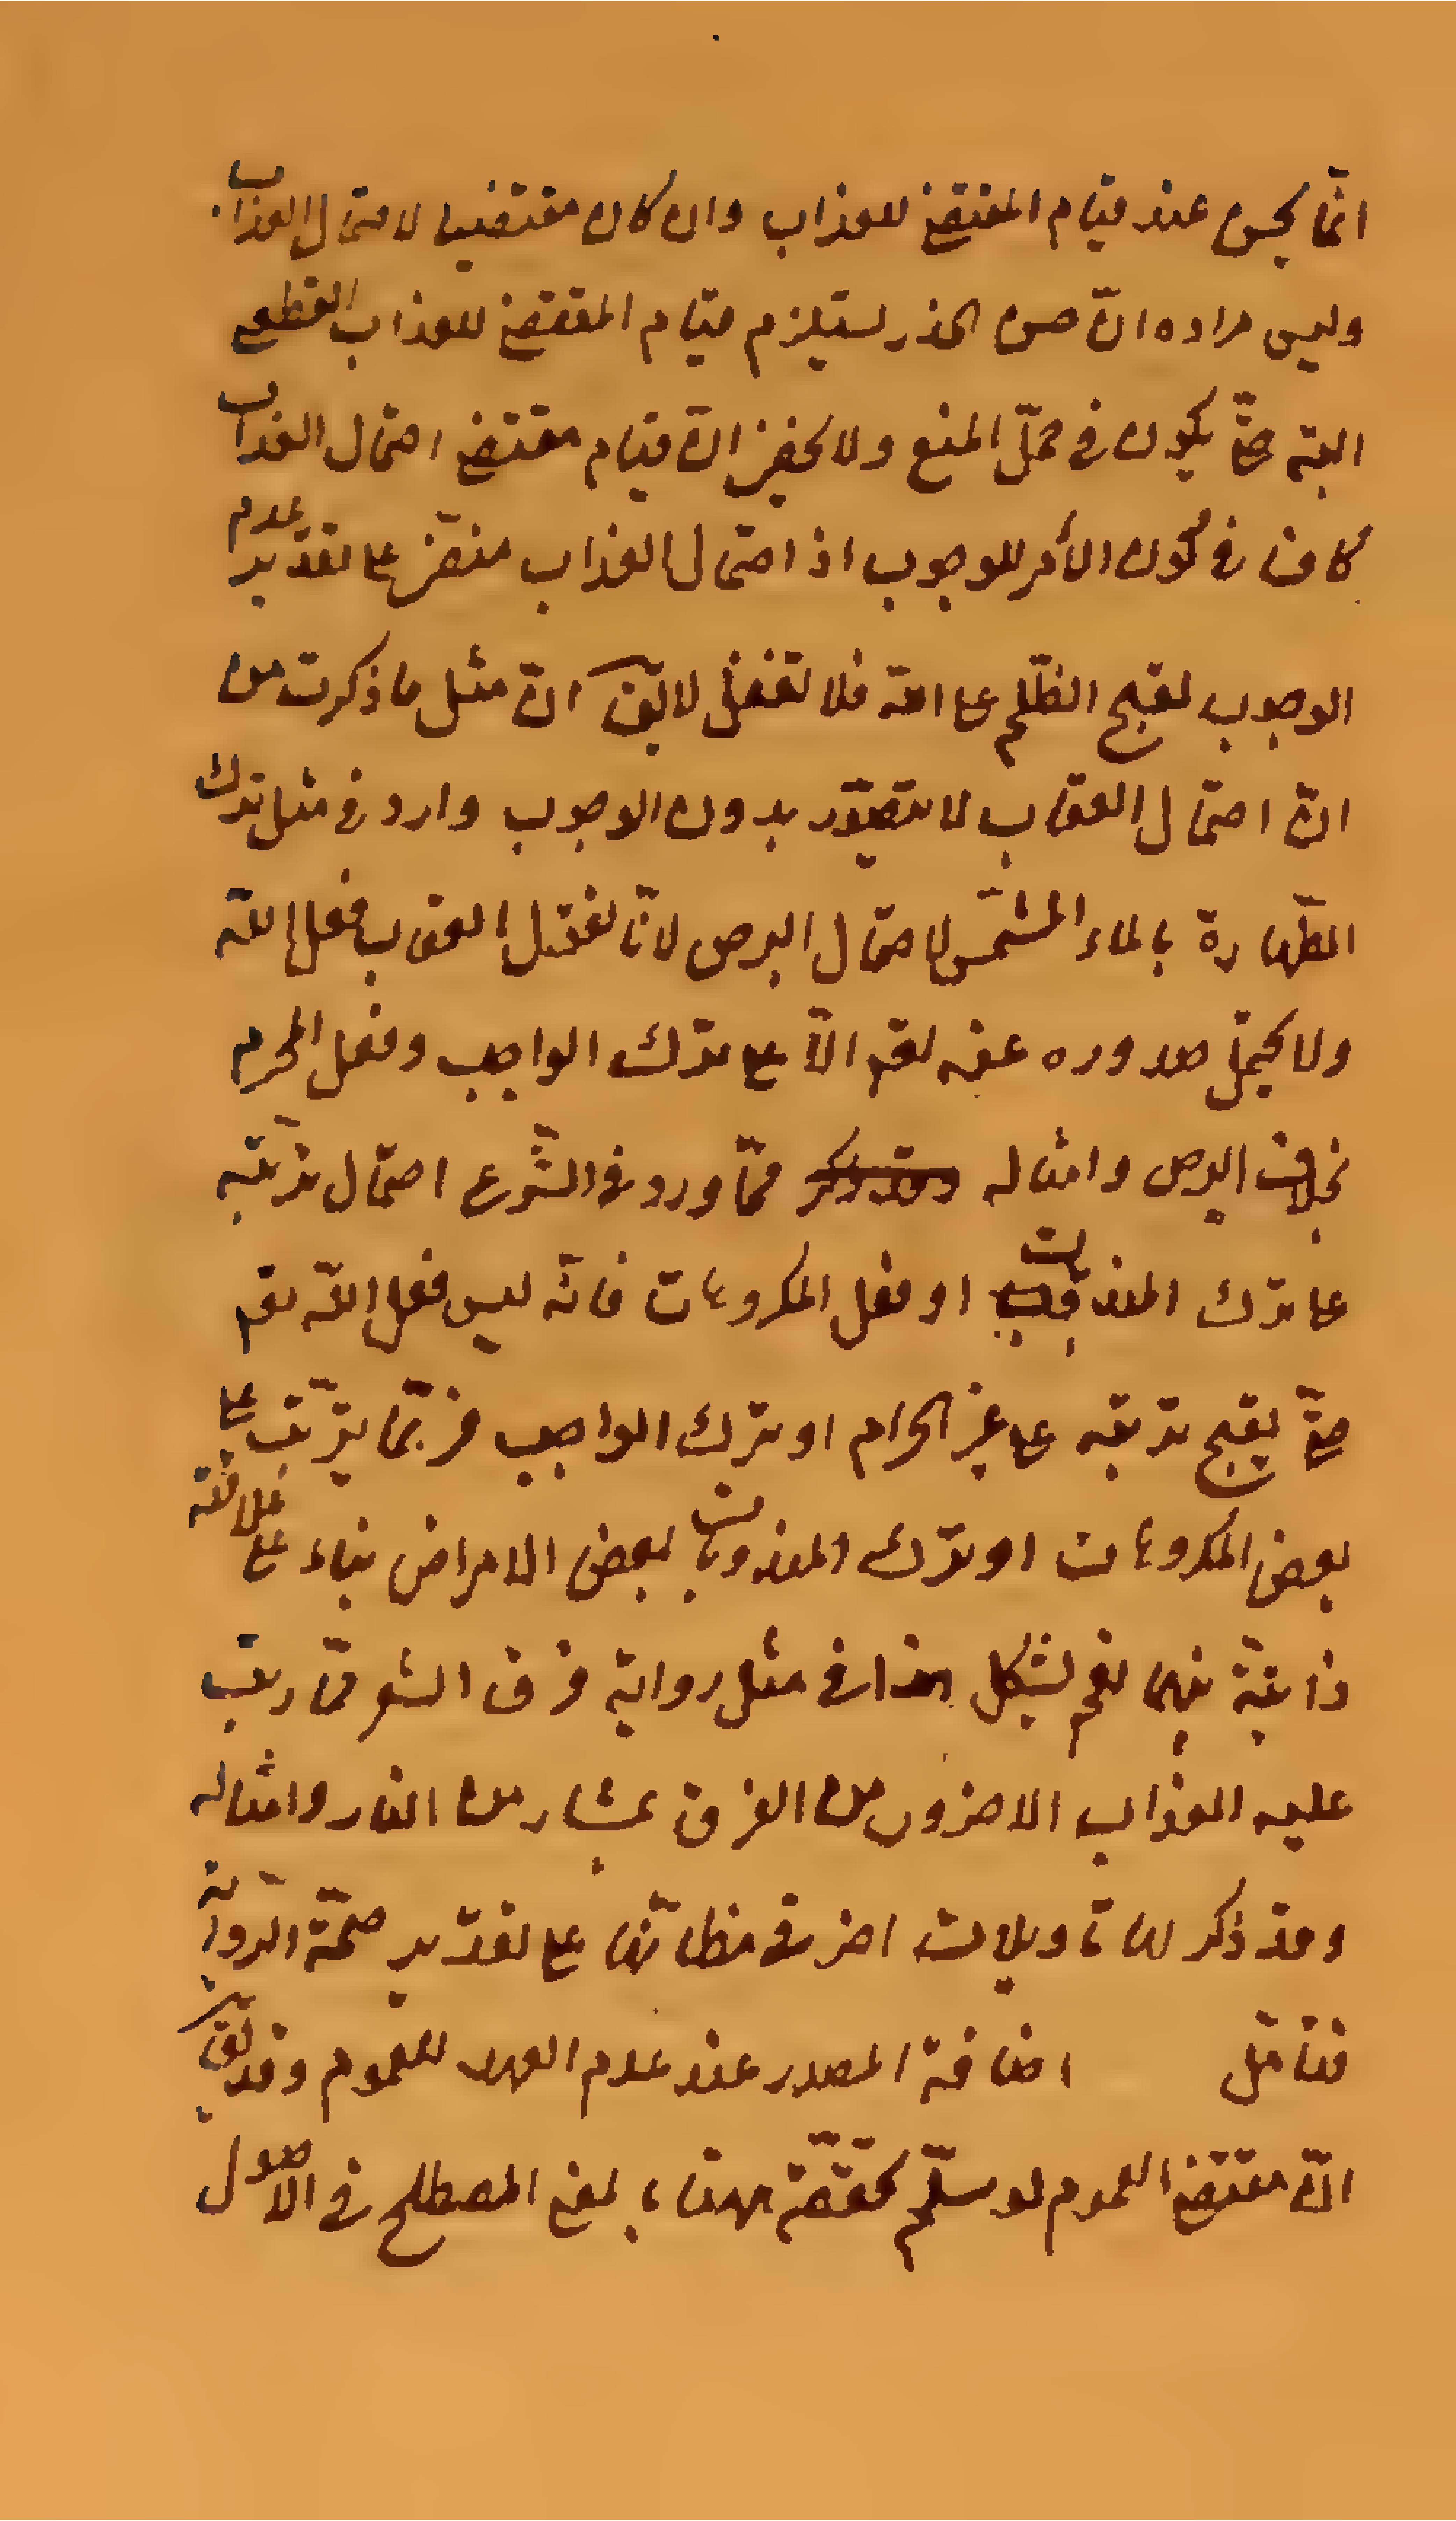 انّما يحسن عند قيام المقتضي للعذاب وان كان مقتضيا لاحتمال العذاب
وليس مراده انّ حسن الحذر يستلزم قيام المقتضي للعذاب القطعي
البتة حتّى يكون في محلّ المنع ولا يخفى انّ قيام مقتضي احتمال العذاب
كاف في كون الأمر للوجوب اذ احتمال العذاب منتفٍ على تقدير عدم
الوجوب لقبح الظّلم على الله فلا تغفل لا يقال انّ مثل ما ذكرت من
انّ احتمال العقاب لا يتصوّر بدون الوجوب وارد في مثل ترك
الطّهارة بالماء المشمّس لاحتمال البرص لانّا نقول العقاب فعل الله
ولا يحتمل صدوره عنه تعم الّا على ترك الواجب وفعل المحرم
بخلاف البرص وامثاله ممّا ورد في الشّرع احتمال ترتّبه
على ترك المندوبات او فعل المكروهات فانّه ليس فعل الله تعم
حتّى يقبح ترتبه على غير الحرام او ترك الواجب فربّما يترتّب على
بعض المكروهات او ترك المندوبات بعض الامراض بناء على علاقة
ذاتيّة بينهما نعم يشكل هذا في مثل رواية فرق الشعر فانّ رتب
عليه العذاب الاخروي من الفرق بمنشار من النار وامثاله
وقد ذكر لها تأويلات اخر في مظانّها على تقدير صحّة الرّواية
فتأمّل اضافة المصدر عند عدم العهد للعموم وقد يقال
انّ مقتضي العموم لو سلّم تحقّقه ههنا بمعنى المصطلح في الاصول